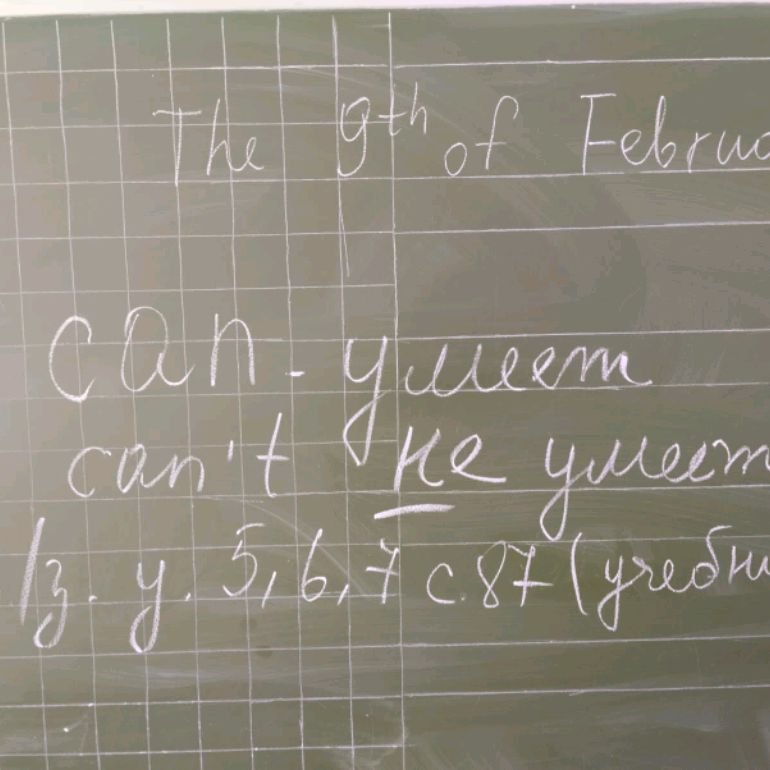 The 9th of Februa
can - умеет
can't не умеет
/з. у. 5, 6, 7 с. 87 (учебни